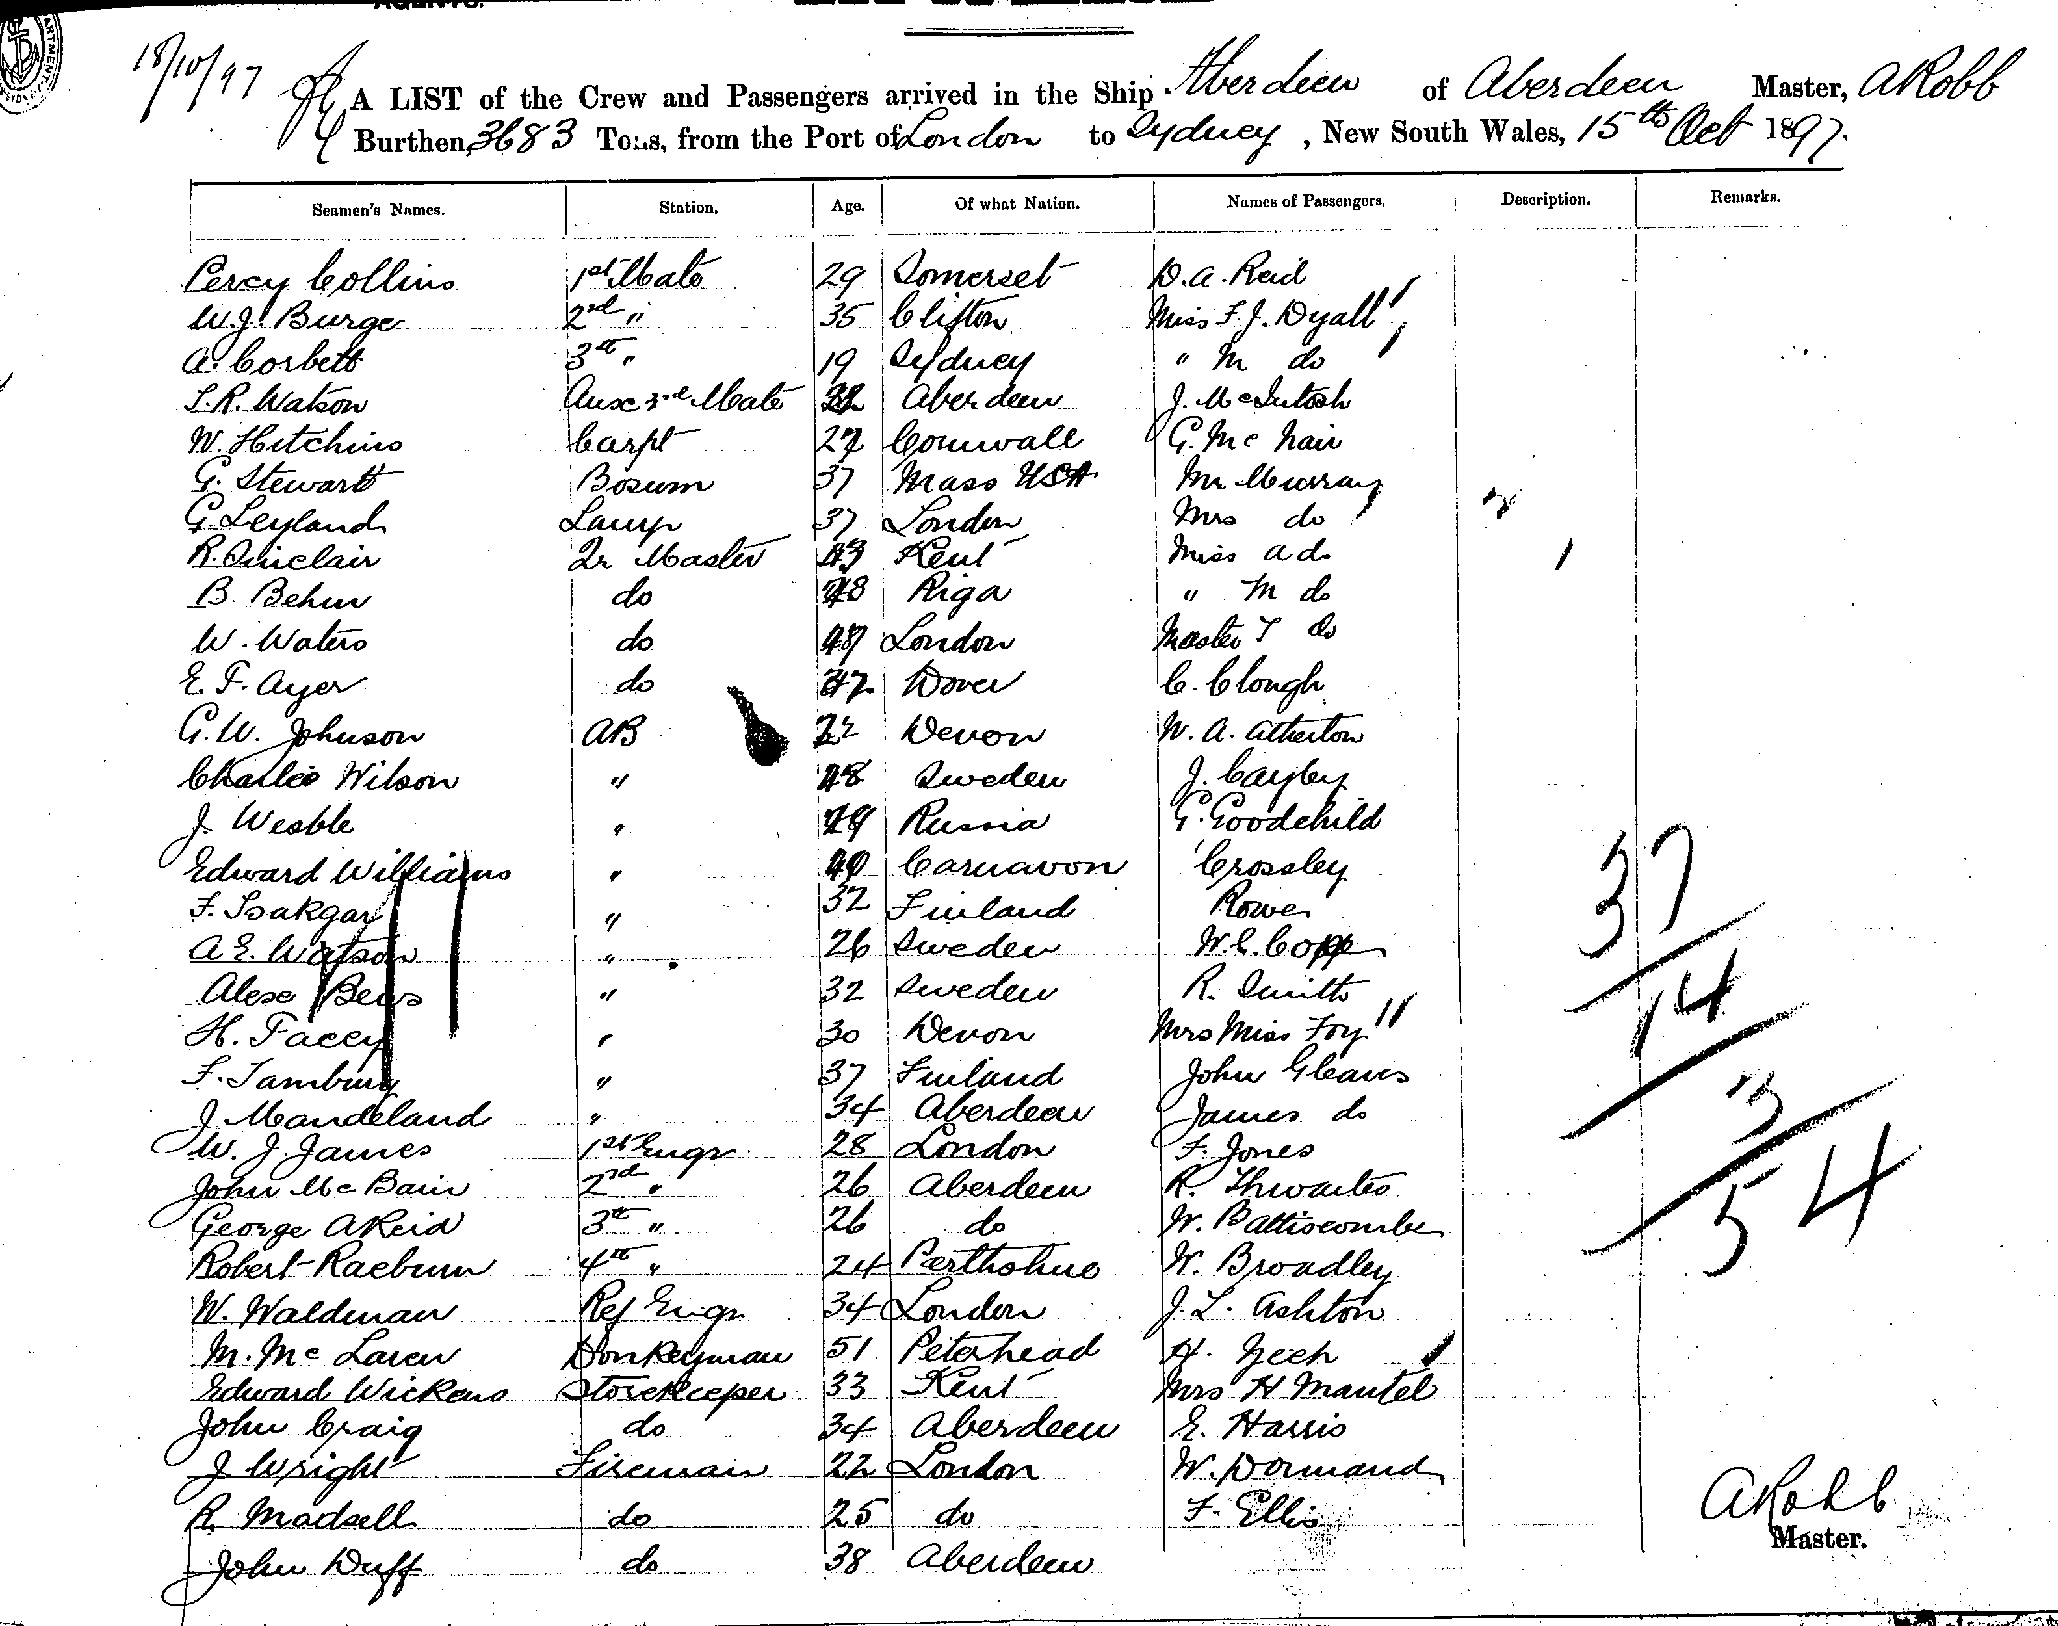 18/10/97
A LIST of the Crew and Passengers arrived in the Ship Aberdeen of Aberdeen Master, A Robb
Burthen 3683 Tons, from the Port of London to Sydney, New South Wales, 15th Oct 1897.
Seamen's Names. Station. Age. Of what Nation. Names of Passengers. Description. Remarks.
Percy Collins 1st Mate 29 Somerset D. A. Reid
W. J. Burge 2nd " 35 Clifton Miss F. J. Dyall
A. Corbett 3th " 19 Sydney " M do
S. R. Watson Aux 3rd Mate Aberdeen J. McIntosh
W. Hitchins Carpt 27 Cornwall G. Mc Nair
G. Stewart Bosum 37 Mass USA Mr Murray
G Leyland Lamp 37 London Mrs do
R. Sinclair Qr Master 43 Kent Miss A do
B. Behm do 28 Riga " M do
W. Waters do 49 London Master T do
E. F. Ayer do 47 Dover C. Clough
G. W. Johnson AB 22 Devon W. A. Atherton
Charlie Wilson " 48 Sweden J. Cayley
J. Wesble " 49 Russia G. Goodchild
Edward Williams " 40 Carnavon Crossley
F. Isakgar " 32 Finland Rowe
A. E. Watson " 26 Sweden W. C. Copp
Alex Bews " 32 Sweden R. Smith
H. Facey " 30 Devon Mrs Miss Foy
F. Tamburg " 37 Finland John Gleaves
J. Mandeland " 34 Aberdeen James do
W. J. James 1st Engr 28 London F. Jones
John Mc Bain 2nd " 26 Aberdeen R. Thwaites
George A Reid 3th " 26 do W. Battiscombe
Robert Raeburn 4th " 24 Perthshire W. Broadley
W. Waldman Ref Engr 34 London J. L. Ashton
M. Mc Laren Donkeyman 51 Peterhead H. Geeh
Edward Wickens Storekeeper 33 Kent Mrs H Mantel
John Craig do 34 Aberdeen E. Harris
J Wright Fireman 22 London W. Dormand
R. Madsell do 25 do F. Ellis
John Duff do 38 Aberdeen
37
14
3
54
A Robb
Master.